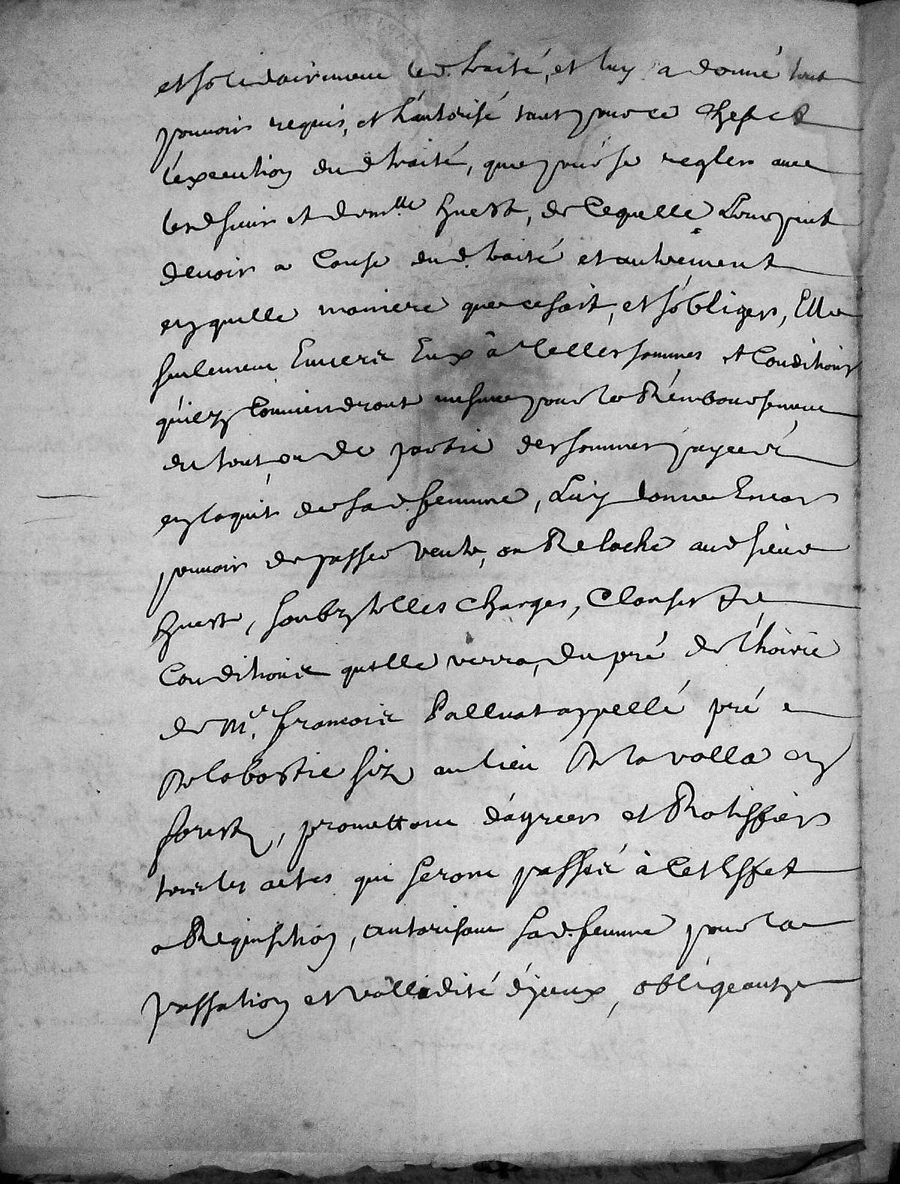 et solidairement led. traité, et luy a donné tout
pouvoir requis, et l'autorisé tant pour ce chef et
l'execution dud traité, que pour se regler avec
lesd sieur et demlle huest, de laquelle
devoir a cause dud. traité et autrement
en quelle maniere que ce soit, et s'obliger, Elle
seulement Envers Eux à telles sommes et Conditions
qu'ilz Conviendront mesme pour le Rembourcement
du tout ou de partie des sommes payées
en l'aquit de sad. femme, Luy donne Encor
pouvoir de passer vente, ou Relache aud sieur
huest, soubz telles charges, Clauses et
Conditions qu'elle verra, du pré de l'hoirie
de Mr. francois Palluat appellé pré
De la bastie size au lieu De la valla en
forest, promettant d'agreer et Ratiffier
tous les actes qui seront passés à Cet Effet
a Requisition, autorisant sad. femme pour la
passation et vallidité d'yceux, obligeant